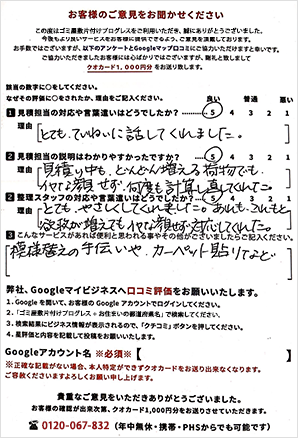 お客様のご意見をお聞かせください
この度はゴミ屋敷片付けプログレスをご利用いただき、誠にありがとうございました。
今後もより良いサービスをお客様に提供できるよう、ご意見を頂戴しております。
お手数ではございますが、以下のアンケートとGoogleマップ口コミにご協力いただけますと幸いです。
ご協力いただきましたお客様には心ばかりではございますが、謝礼と致しまして
クオカード1,000円分をお送り致します。
該当の数字に○をしてください。
なぜその評価に○をされたか、理由をご記入ください。
良い 普通 悪い
1 見積担当の対応や言葉遣いはどうでしたか? 5 4 3 2 1
理由
とても、ていねいに話してくれました。
2 見積担当の説明はわかりやすかったですか? 5 4 3 2 1
理由
見積り中も、どんどん増える荷物でも、
イヤな顔せず、何度も計算し直してくれた。
2 整理スタッフの対応や言葉遣いはどうでしたか? 5 4 3 2 1
理由
とても、やさしくしてくれました。あれも、これもと
変更が増えてもイヤな顔せず対応してくれた。
3 こんなサービスがあれば便利と思われる事やその他がございましたらご記入ください。
模様替えの手伝いや、カーペット貼りなど
弊社、Googleマイビジネスへ口コミ評価をお願いいたします。
1. Googleを開いて、お客様のGoogleアカウントでログインしてください。
2. 「ゴミ屋敷片付けプログレス+お住まいの都道府県名」で検索してください。
3. 検索結果にビジネス情報が表示されるので、「クチコミ」ボタンを押してください。
4. 星評価と内容を記載して投稿をお願いいたします。
Googleアカウント名 ※必須※【
※正確な記載がない場合、本人特定ができずクオカードをお送り出来なくなります。
ご容赦くださいますようよろしくお願い申し上げます。
貴重なご意見をいただきありがとうございました。
お客様の確認が出来次第、クオカード1,000円分をお送りさせていただきます。
0120-067-832(年中無休・携帯・PHSからでも可能です)